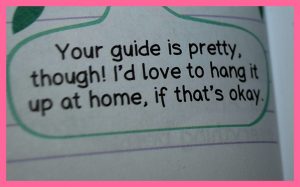 Your guide is pretty,
though! I'd love to hang it
up at home, if that's okay.